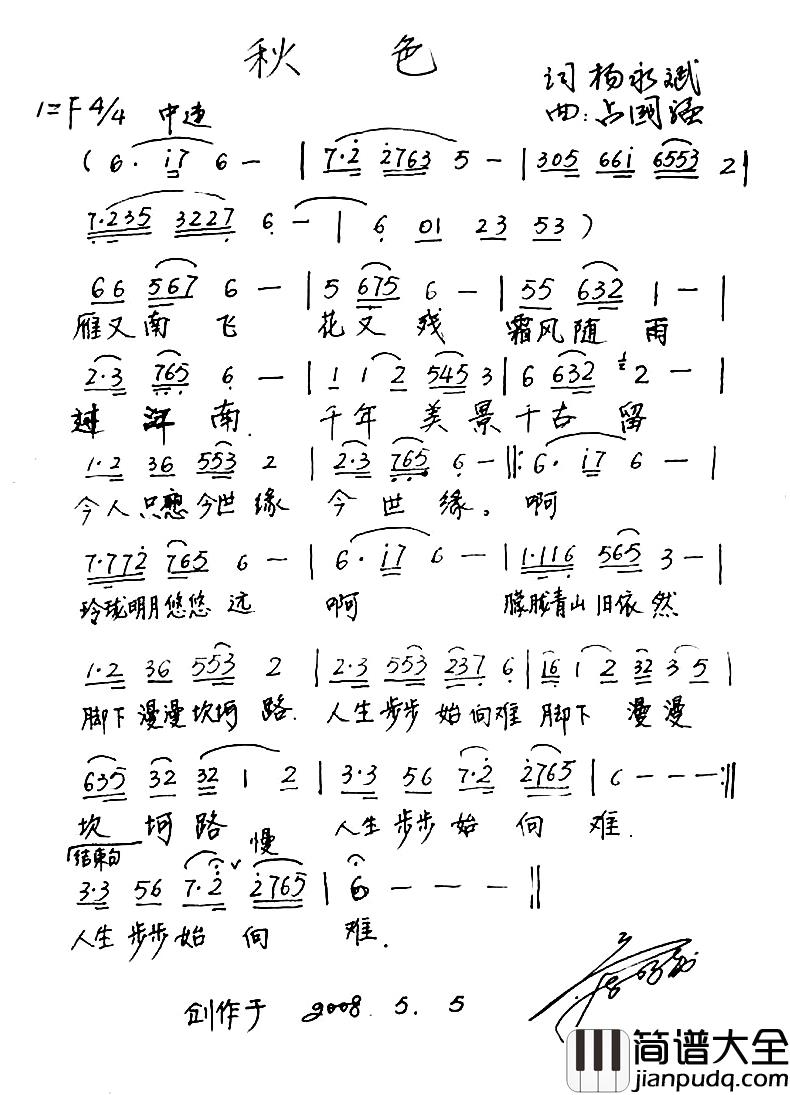 秋 色
词 杨永斌
曲:占国强
1=F 4/4 中速
( 6· i7 6 — | 7·2 2763 5 — | 305 66i 6553 2 |
7·235 3227 6 — | 6 01 23 53 )
66 567 6 — | 5 675 6 — | 55 632 1 — |
雁又南飞 花又残 霜风随雨
2·3 765 6 — | 1 1 2 545 3 | 6 632 2 — |
过江南. 千年美景千古留
1·2 36 553 2 | 2·3 765 6 — |: 6· i7 6 — |
今人只愿今世缘 今世缘。啊
7·772 765 6 — | 6· i7 6 — | 1·116 565 3 — |
玲珑明月悠悠远 啊 朦胧青山旧依然
1·2 36 553 2 | 2·3 553 237 6 | 16 1 2 32 3 5 |
脚下漫漫坎坷路. 人生步步始向难 脚下漫漫
635 32 32 1 2 | 3·3 56 7·2 2765 | 6 — — — :||
坎坷路 人生步步始向难.
结束句 慢
3·3 56 7·2 2765 | 6 — — — ||
人生步步始向难.
创作于 2008. 5. 5
简谱大全
jianpudq.com